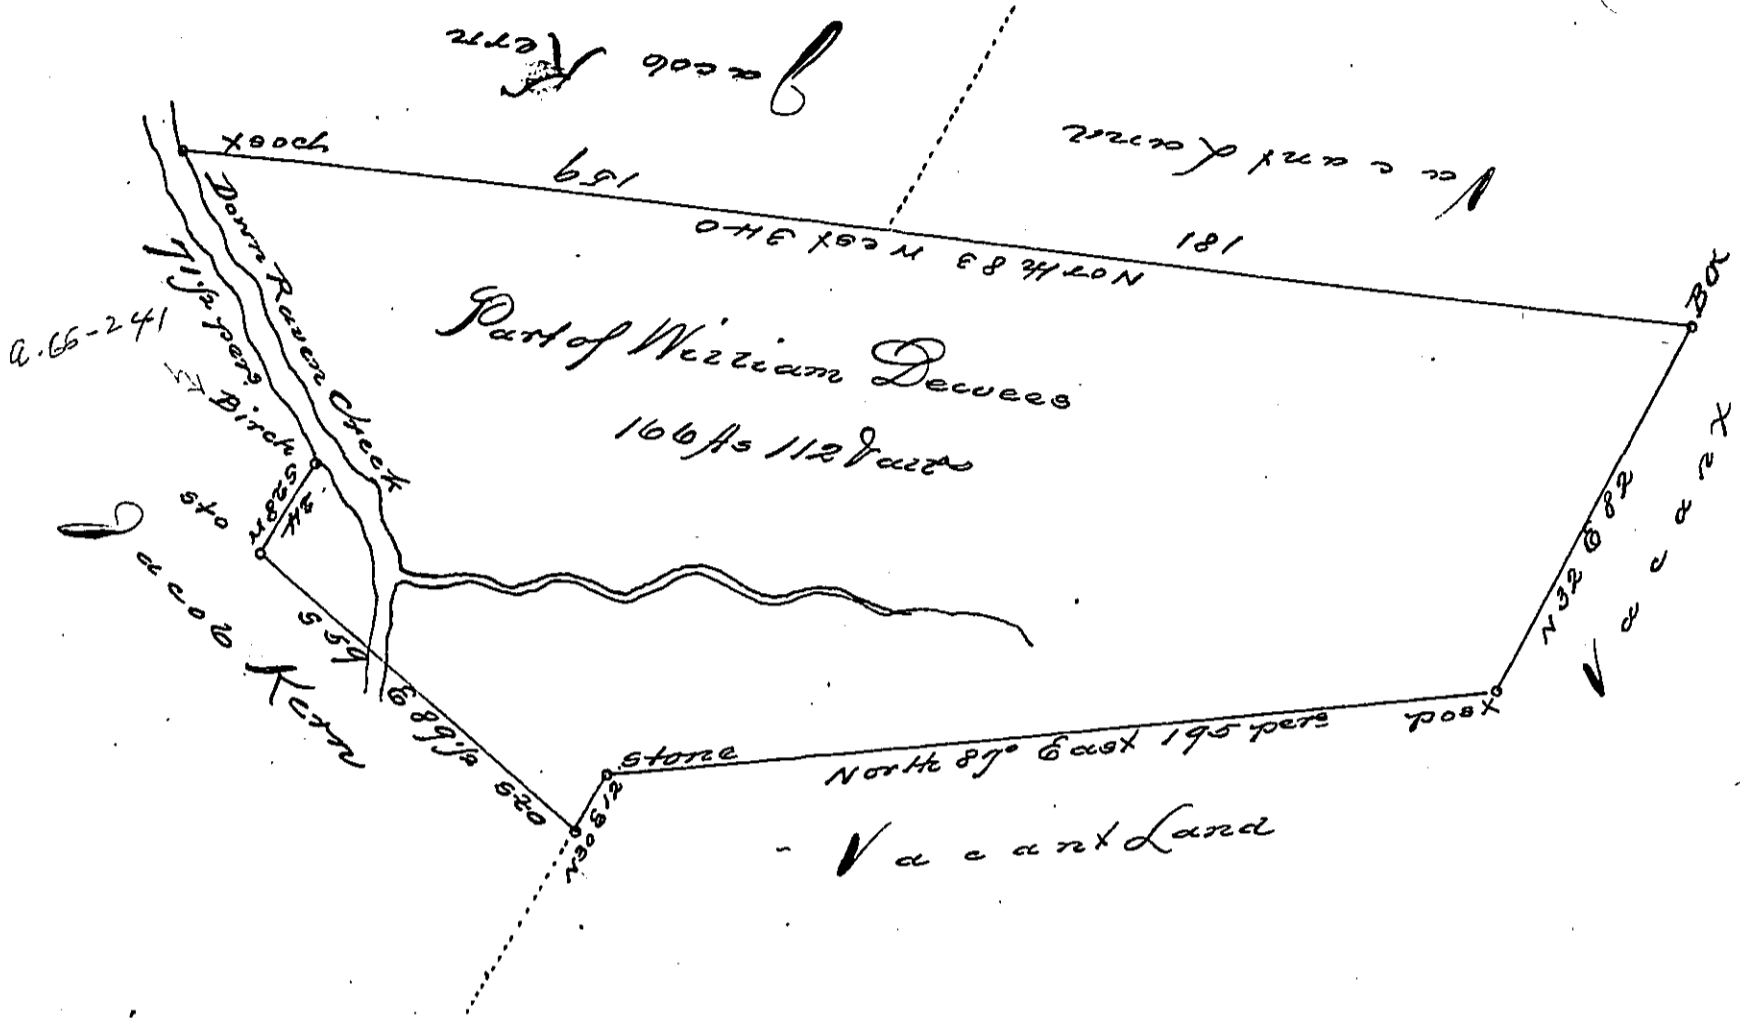 Jacob Kern
Vacant Land
post
159
181
North 83 West 340
B Ok
Down Raven Creek
71 1/2 pers.
a.66-241
Birch
Part of William Dewees
166 As 112 
S 28 W
42
sto
Jacob Kern
S 59
E 89 1/2
S 20
N 30 E 12
stone
North 85° East 195 pers
post
N 32 E 82
Vacant
Vacant Land